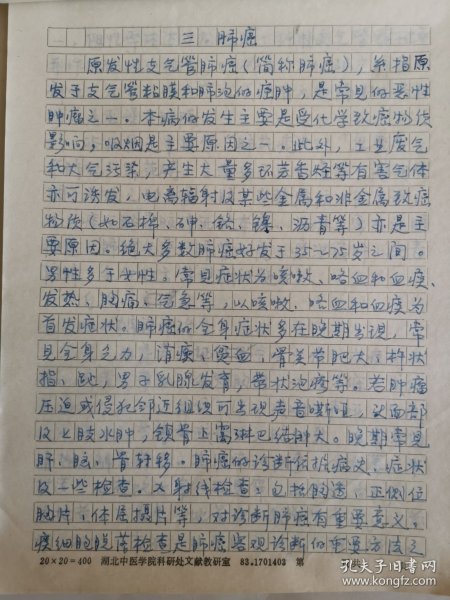 三 肺癌
原发性支气管肺癌(简称肺癌),系指原
发于支气管粘膜和肺泡的癌肿,是常见的恶性
肿瘤之一。本病的发生主要是受化学致癌物质
影响,吸烟是主要原因之一。此外,工业废气
和大气污染,产生大量多环芳香烃等有害气体
亦可诱发,电离辐射及某些金属和非金属致癌
物质(如石棉、砷、铬、镍、沥青等)亦是主
要原因。绝大多数肺癌好发于35~75岁之间。
男性多于女性。常见症状为咳嗽、咯血和血痰、
发热、胸痛、气急等,以咳嗽、咯血和血痰为
首发症状。肺癌的全身症状多在晚期出现,常
见全身乏力,消瘦、贫血,骨关节肥大、杵状
指、趾,男子乳腺发育,带状疱疹等。若肿瘤
压迫或侵犯邻近组织可出现声音嘶哑,头面部
及上肢水肿,锁骨上窝淋巴结肿大。晚期常见
肝、脑、骨转移。肺癌的诊断依据病史、症状
及一些检查。X射线检查:包括胸透、正侧位
胸片、体层摄片等,对诊断肺癌有重要意义。
痰细胞脱落检查是肺癌客观诊断的重要方法之
20×20=400 湖北中医学院科研处文献教研室 83.1701403 第
孔夫子旧书网